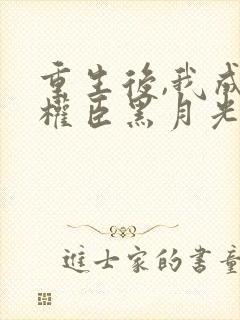 重生後,我成
權臣黑月光
進士家的書童